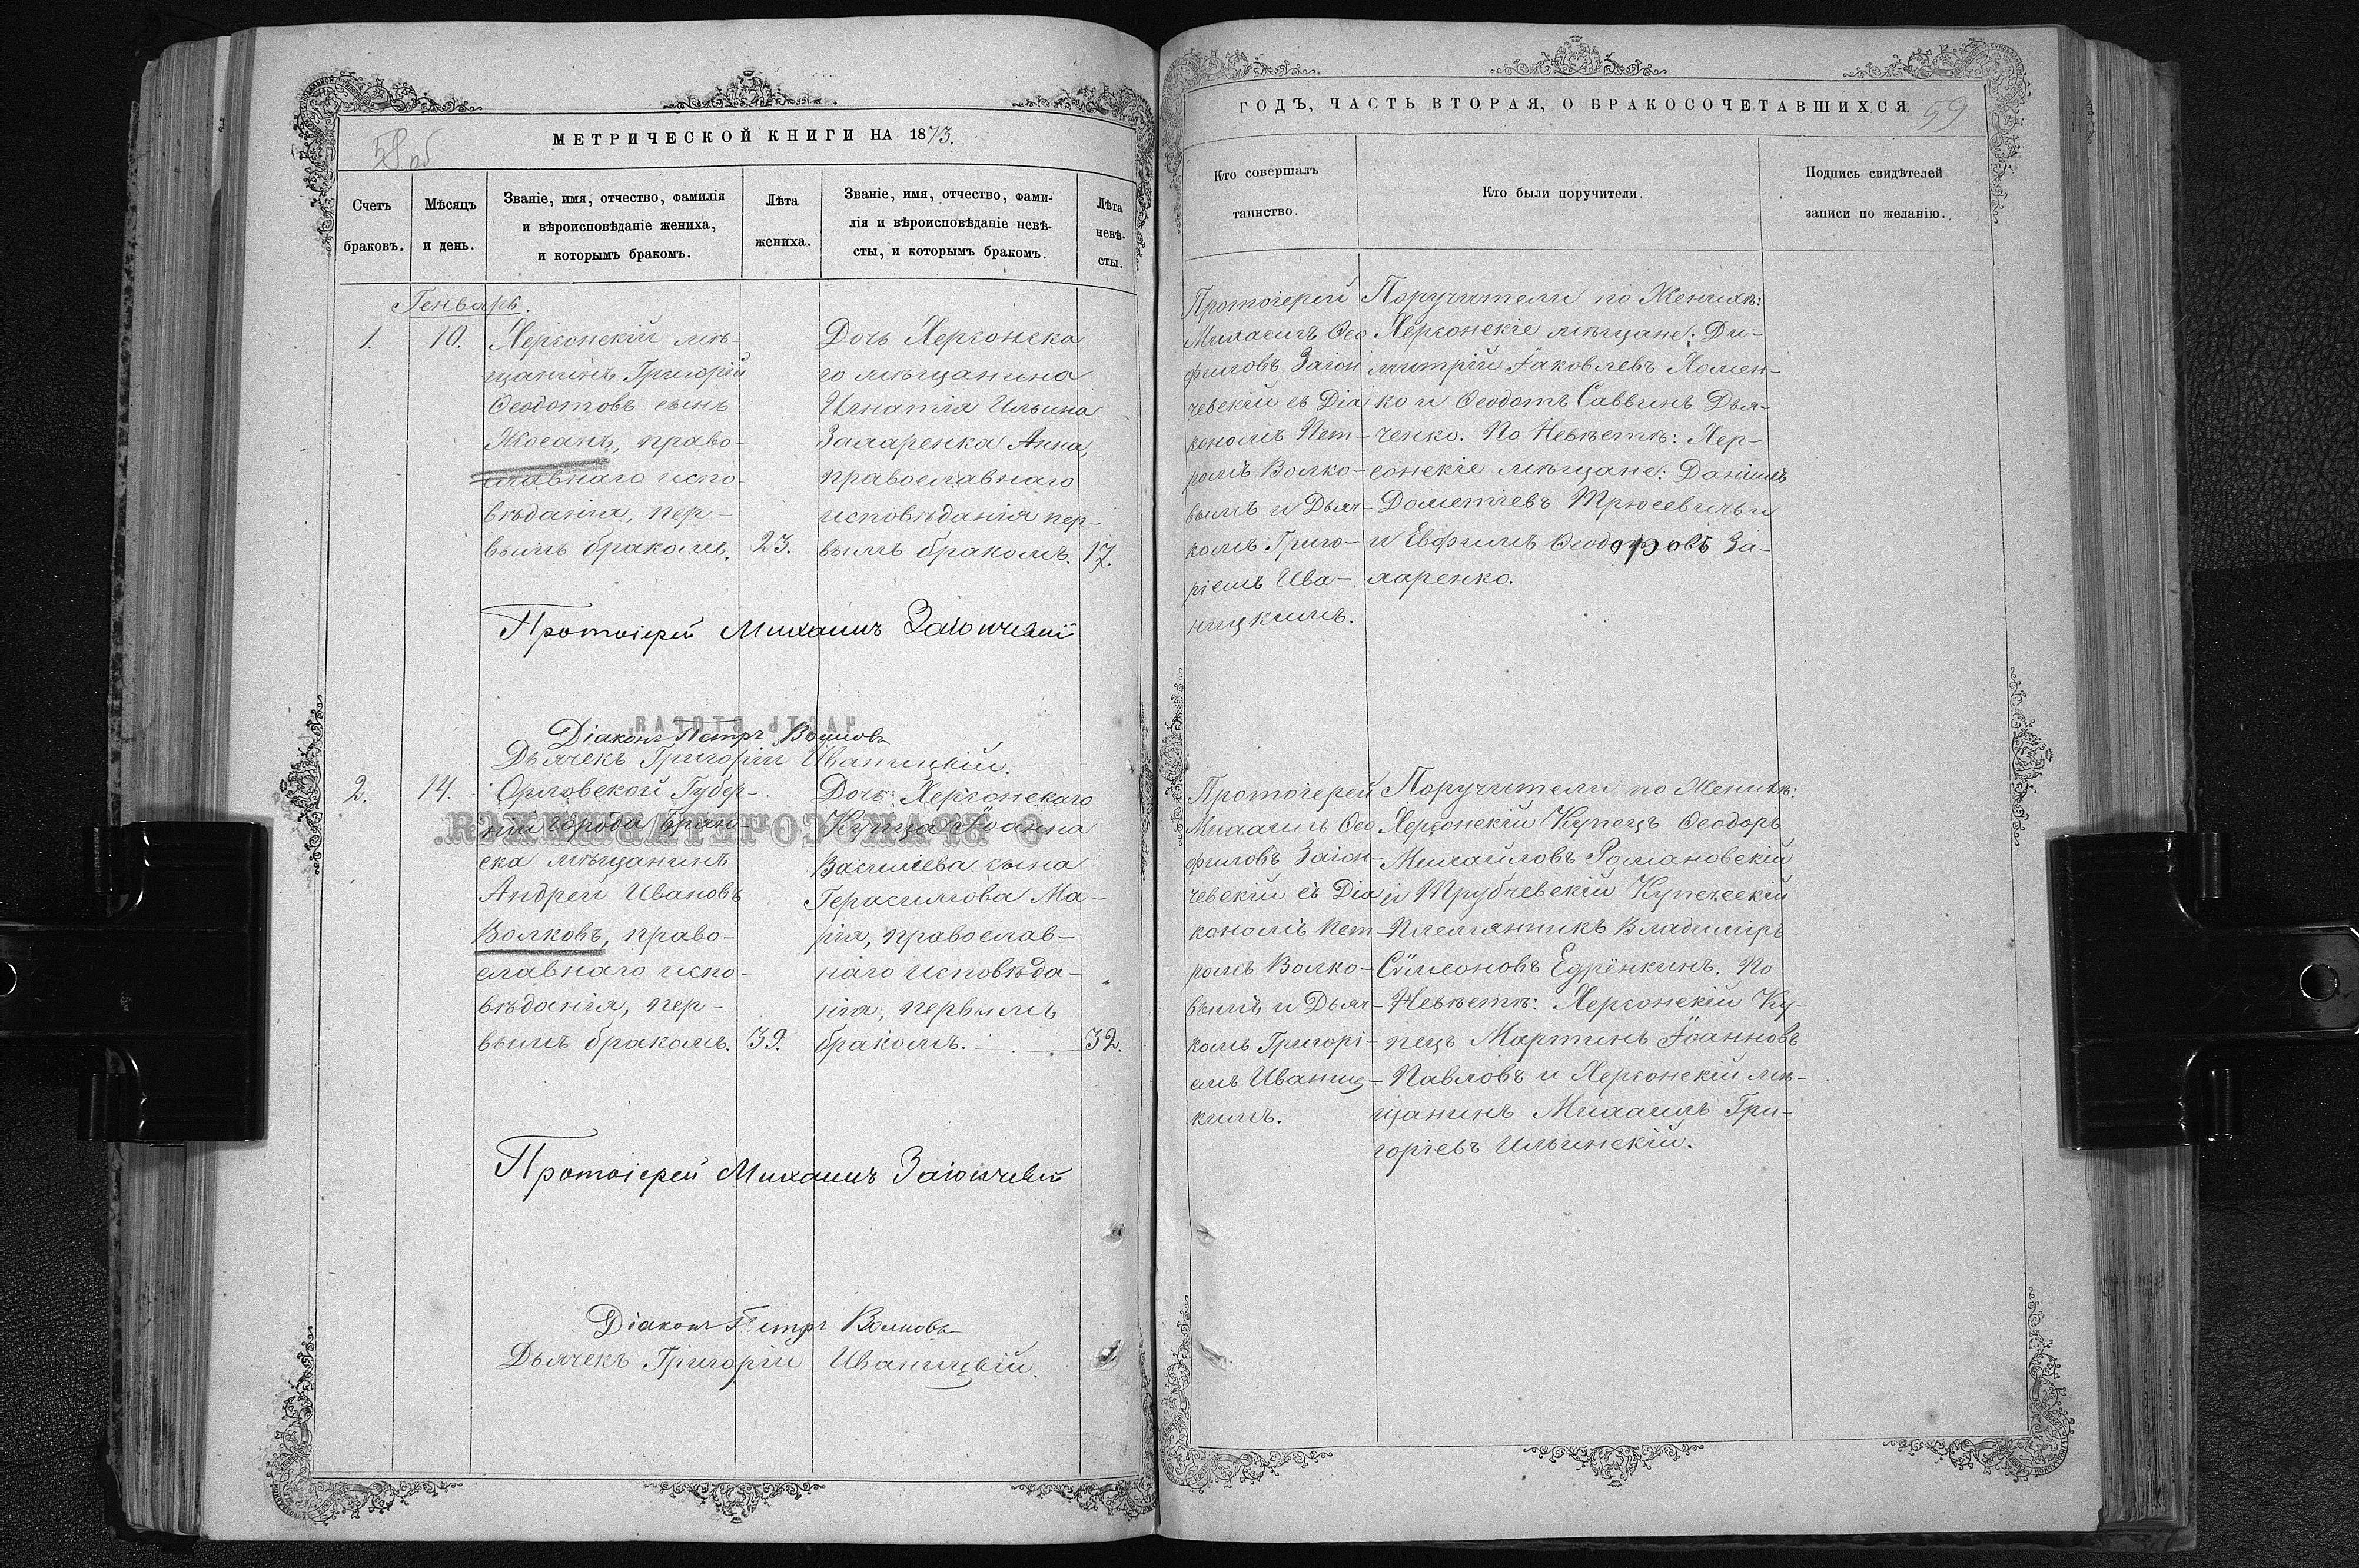 58 об
МЕТРИЧЕСКОЙ КНИГИ НА 1873.
Счетъ
браковъ.
Мѣсяцъ
и день.
Званіе, имя, отчество, фамилія
и вѣроисповѣданіе жениха,
и которымъ бракомъ.
Лѣта
жениха.
Званіе, имя, отчество, фами-
лія и вѣроисповѣданіе невѣ-
сты, и которымъ бракомъ.
Лѣта
невѣ-
сты.
Генварь.
1.
10.
Херсонскій мѣ-
щанинъ Григорій
Ѳеодотовъ сынъ
право-
славнаго испо-
вѣданія, пер-
вымъ бракомъ.
23.
Дочь Херсонска
го мѣщанина
Игнатія Ильина
Захаренка Анна,
православнаго
исповѣданія пер-
вымъ бракомъ.
17.
Протоіерей Михаилъ Загоичевскій
Діаконъ Петръ Волковъ
Дьячекъ Григорій Иваницкій.
2.
14.
Орловской Губер-
ніи города Брян
ска мѣщанинъ
Андрей Ивановъ
Волковъ, право-
славнаго испо-
вѣданія, пер-
вымъ бракомъ.
39.
Дочь Херсонскаго
Купца Іоанна
Василіева сына
Герасимова Ма-
рія, православ-
наго исповѣда-
нія, первымъ
бракомъ.
32.
Протоіерей Михаилъ Загоичевскій
Діаконъ Петръ Волковъ
Дьячекъ Григорій Иваницкій.
ГОДЪ, ЧАСТЬ ВТОРАЯ, О БРАКОСОЧЕТАВШИХСЯ
59
Кто совершалъ
таинство.
Кто были поручители.
Подпись свидѣтелей
записи по желанію.
Протоіерей
Михаилъ Ѳео
филовъ Загои
чевскій съ Діа
кономъ Пет-
ромъ Волко-
вымъ и Дьяч-
комъ Григо-
ріемъ Ива-
ницкимъ.
Поручители по Женихѣ:
Херсонскіе мѣщане: Ди-
митрій Іаковлевъ Хомен-
ко и Ѳеодотъ Саввинъ Дья-
ченко. По Невѣстѣ: Хер-
сонскіе мѣщане: Даніилъ
Дометіевъ Трюсевичъ и
и Евфимъ Ѳеодоровъ За-
харенко.
Протоіерей
Михаилъ Ѳео
филовъ Загои-
чевскій съ Діа
кономъ Пет-
ромъ Волко-
вымъ и Дьяч-
комъ Григорі-
емъ Иваниц-
кимъ.
Поручители по Женихѣ:
Херсонскій Купецъ Ѳеодоръ
Михайловъ Романовскій
и Трубчевскій Купеческій
Племянникъ Владиміръ
Сѵмеоновъ Едрёнкинъ. По
Невѣстѣ: Херсонскій Ку-
пецъ Мартинъ Іоанновъ
Павловъ и Херсонскій мѣ-
щанинъ Михаилъ Гри-
горіевъ Ильинскій.